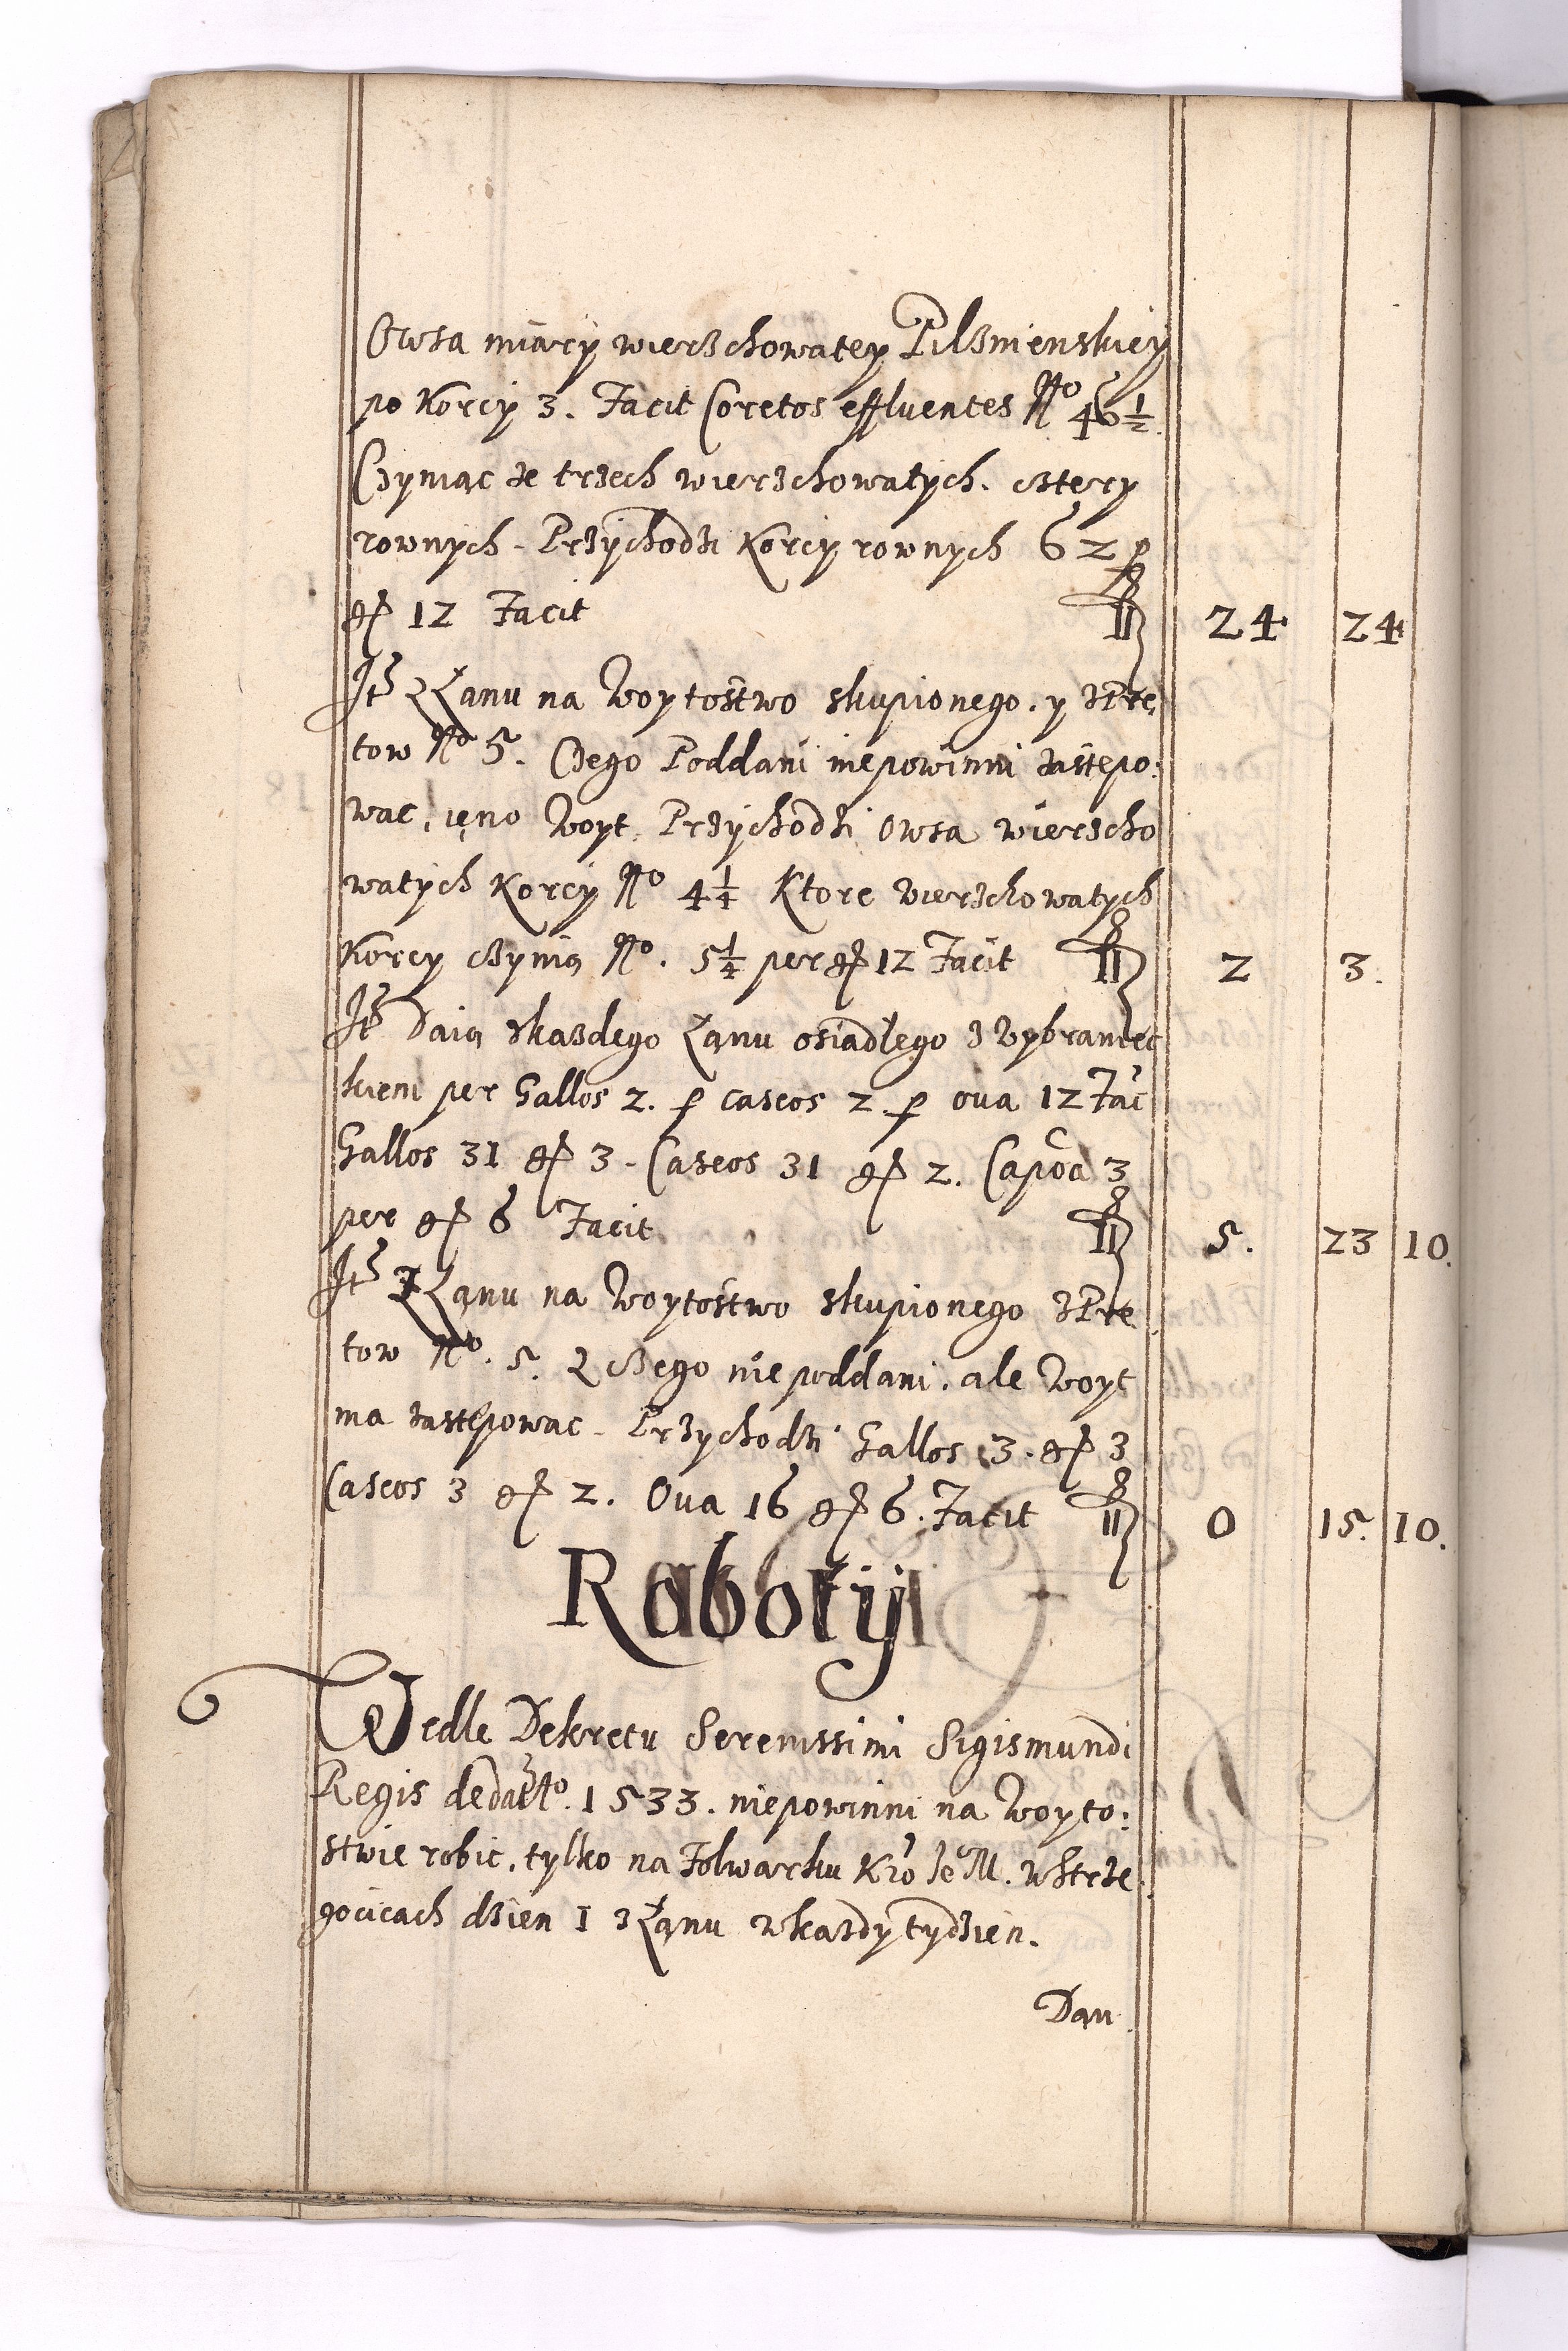 Owsa miary wierzchowatey Pilznienskiey
po Korcy 3. Facit Coretos effluentes No 46 1/2
Czyniąc ze trzech wierzchowatych. cztery
rownych - Przychodzi Korcy rownych 62 p
gr 12 Facit fl 24 24
Itm z Łanu na Woytostwo skupionego. y z Prę
tow No 5. Czego Poddani niepowinni zastępo:
wac, ieno Woyt. Przychodzi Owsa wierzcho
watych Korcy No 4 1/4 Ktore wierzchowatych
Korcy czynią No. 5 1/4 per gr 12 Facit fl 2 3.
Itm Daią zkazdego Łanu osiadłego z Wybraniec
kiem per Gallos 2. p caseos 2. p oua 12 Fac
Gallos 31 gr 3 - Caseos 31 gr 2. Capoa 3
per gr 6 Facit fl 5. 23 10.
Itm z Łanu na Woytostwo skupionego z Prę
tow No. 5. z czego nie poddani. ale Woyt
ma zastępowac - Przychodzi Gallos 3. gr 3
Caseos 3 gr 2. Oua 16 gr 6. Facit fl 0 15. 10.
Robotÿ
Wedle Dekretu Serenissimi Sigismundi
Regis de dato. 1533. niepowinni na Woyto:
stwie robic. tylko na Folwarku Kro Je M. w Strze
gocicach dzien 1 z Łanu w kazdy tydzien.
Dan